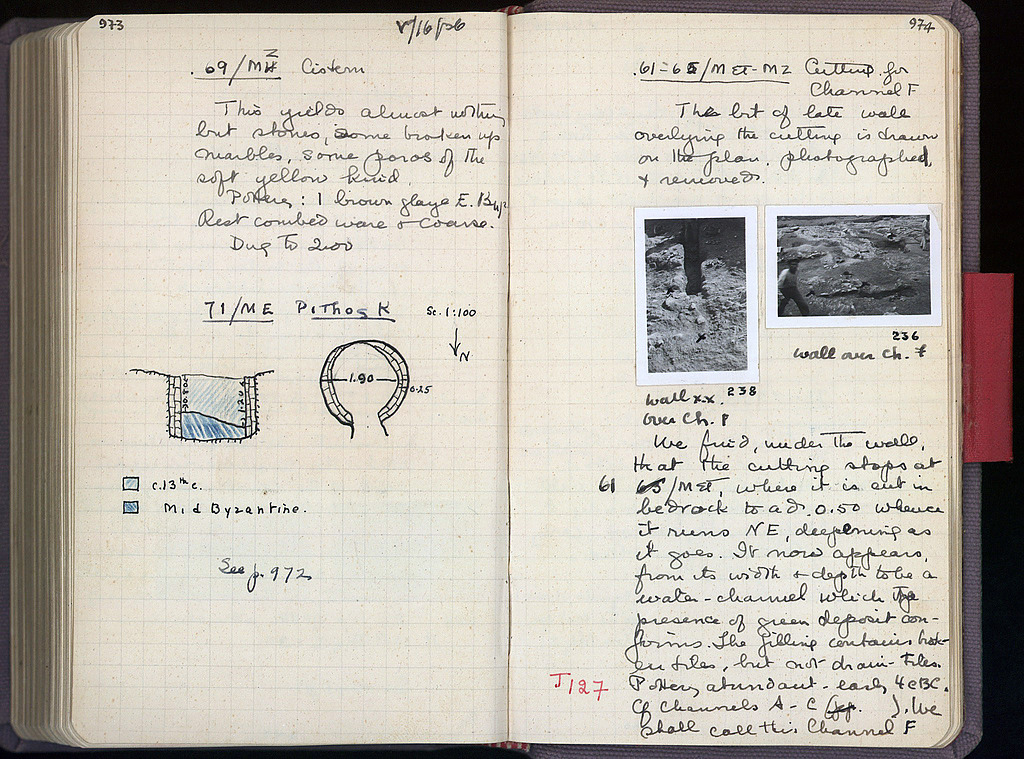 973
.69/MH Cistern
This yields almost nothing
but stones, some broken up
marbles, some poros of the
soft yellow kind.
Pottery: 1 brown glaze E. Byz
Rest combed ware & coarse.
Dug to 2.00
71/ME Pithos K Sc. 1:100
N
1.90
0.25
c.13th c.
Mid Byzantine.
See p. 972
974
.61-65/MET-MZ Cutting for
Channel F
The bit of late wall
overlying the cutting is drawn
on the plan, photographed,
& removed.
236
wall over Ch. F
238
wall xx.
over Ch. F
We find, under the wall,
that the cutting stops at
61 /MET, where it is cut in
bedrock to a d. 0.50 whence
it runs NE, deepening as
it goes. It now appears,
from its width & depth to be a
water-channel which the
presence of green deposit con-
firms. The filling contains brok-
en tiles, but not drain-tiles.
J127
Pottery abundant - early 4c BC.
Cf Channels A-C (pp. ). We
shall call this Channel F